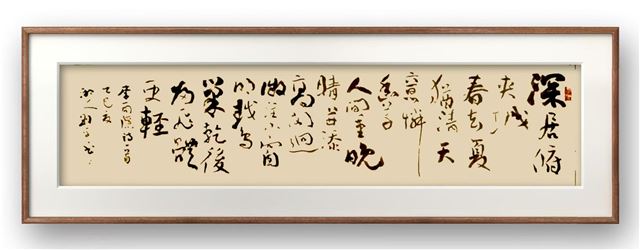 深居俯
夾城
春去夏
猶清天
意憐
幽草
人間重晚
晴並添
高閣迥
微注小窗
明越鳥
巢乾後
歸飛體
更輕
李商隱詩一首
乙巳夏